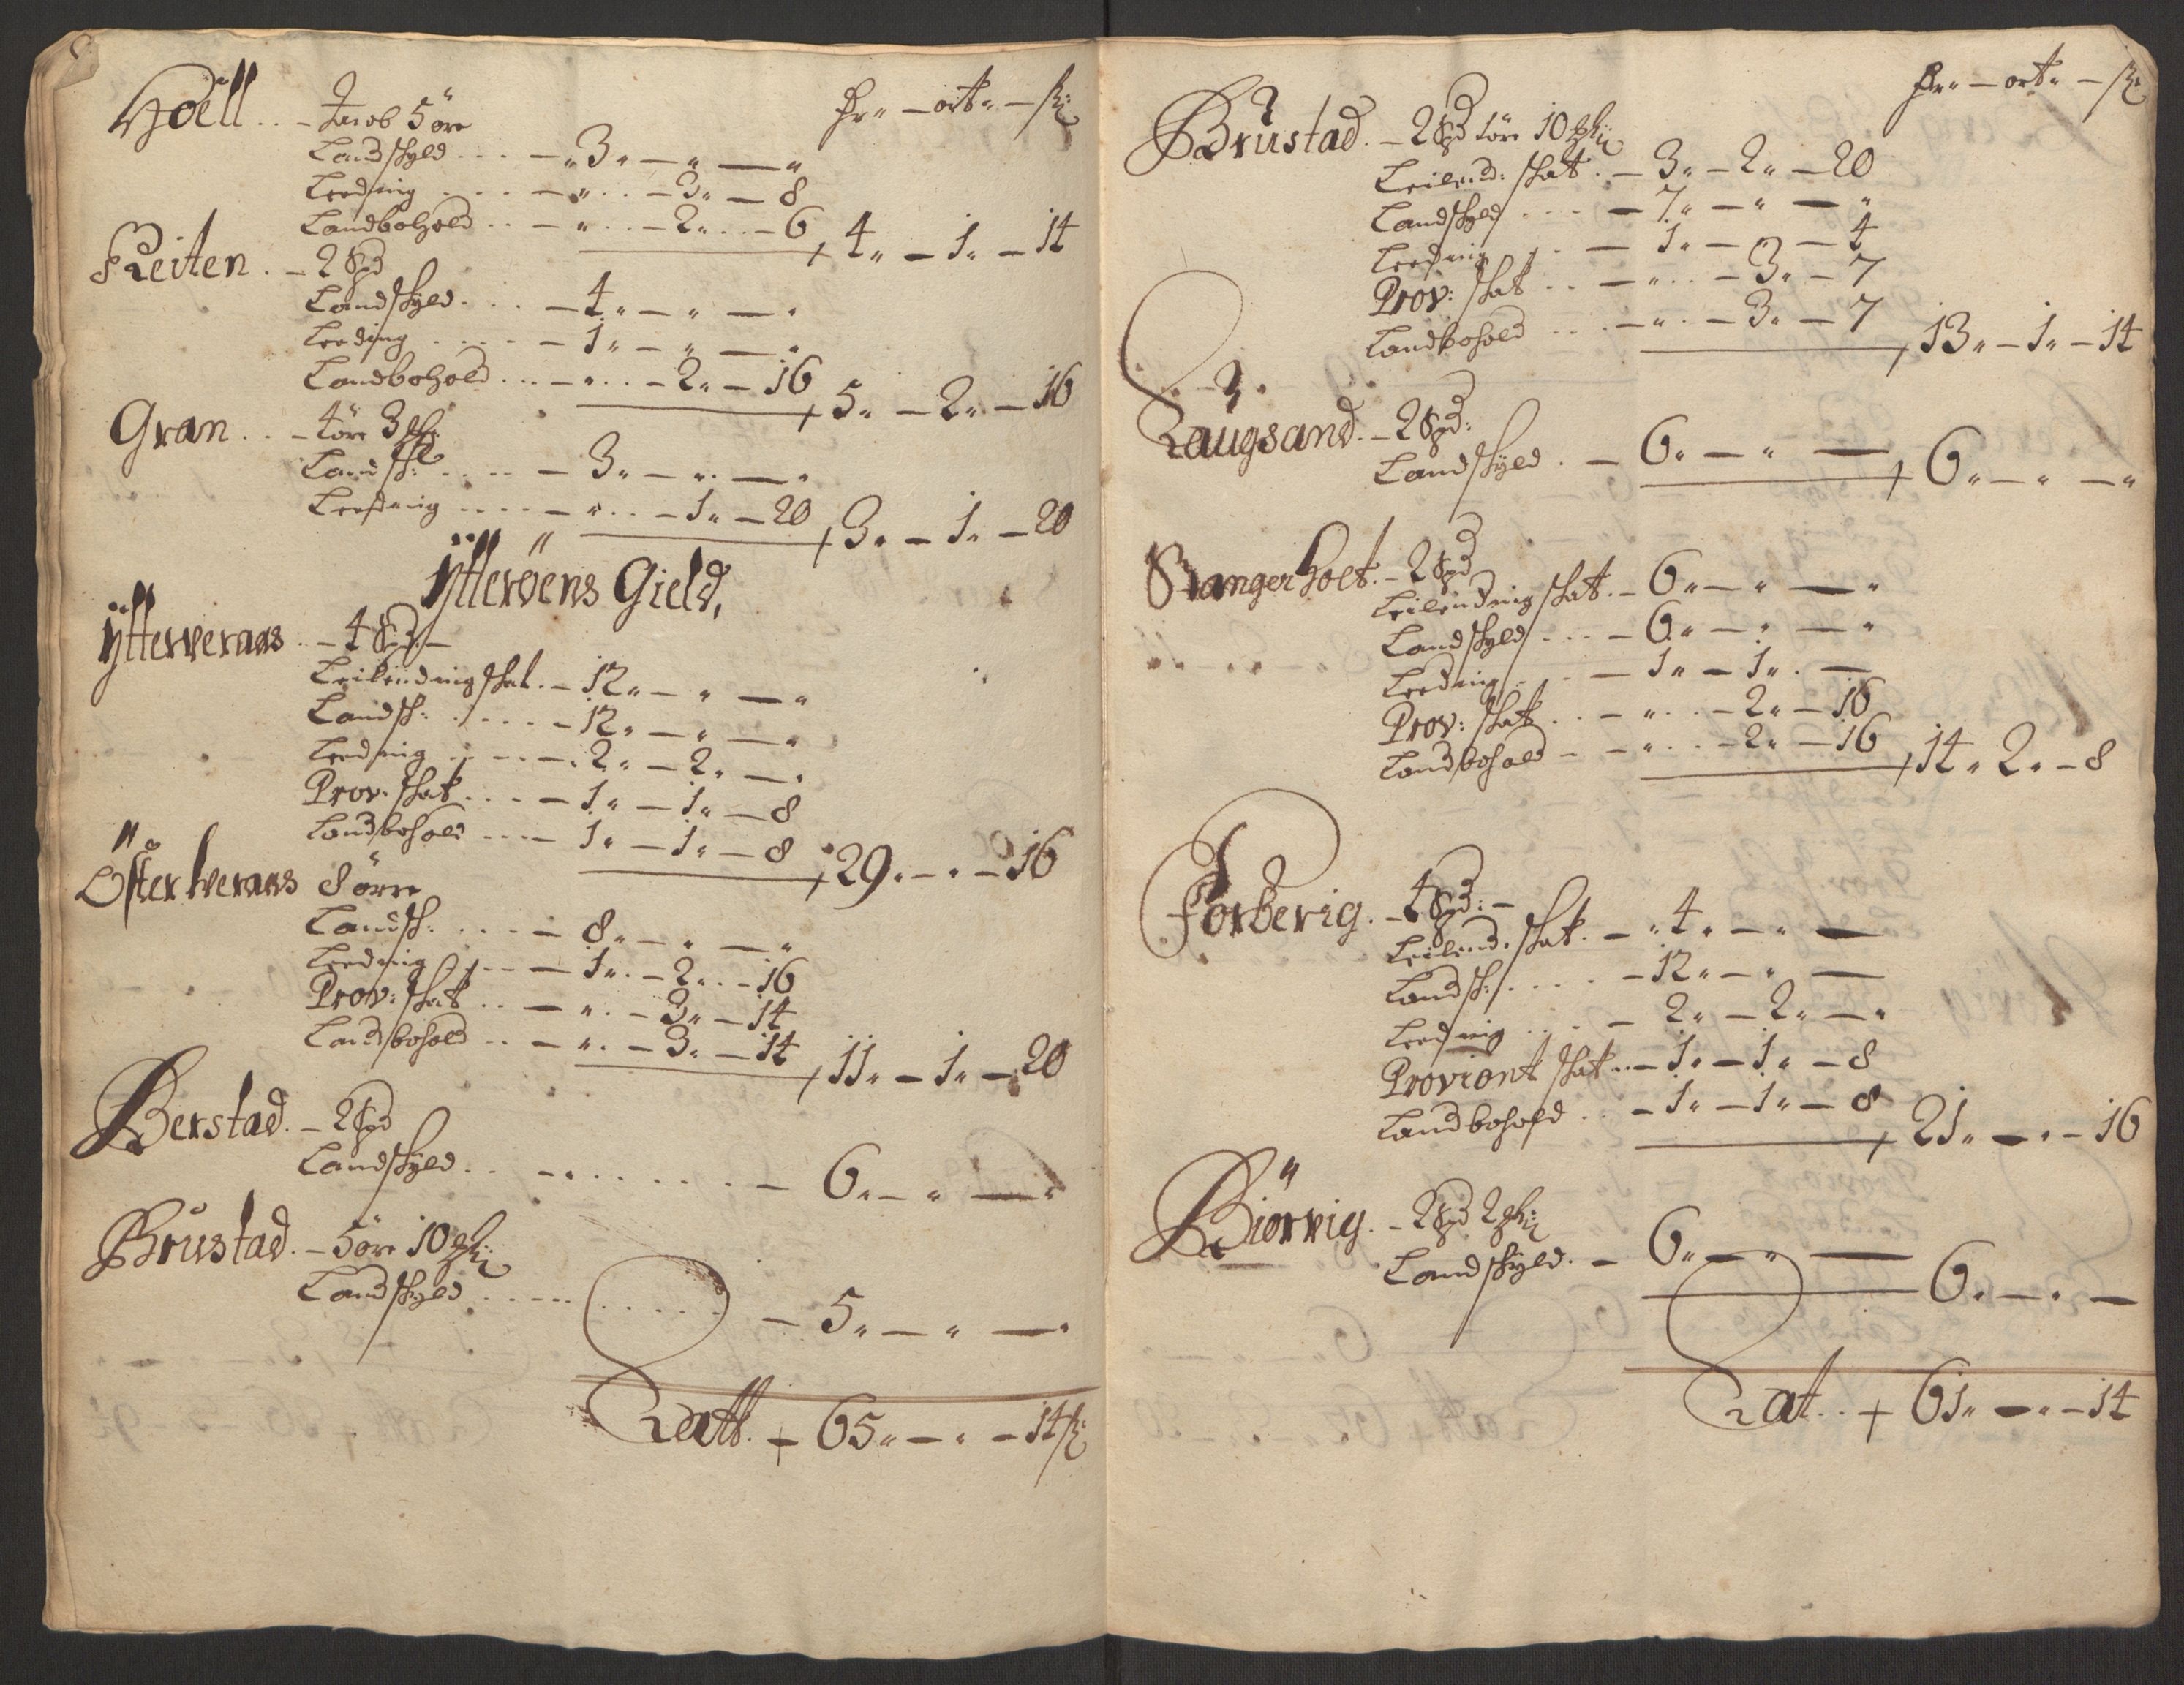 Höell . . – Jacob 5 öre
Rr – ort – ß
Landskyld . . . – 3 – „ – „
Leeding . . . . – „ . . – 3 – 8
Landbohold . . – „ . . – 2 . . – 6 4 – 1 – 14
Reiten . – 2 Spd
Landskyld . . . – 4 – „ – „
Leeding . . . . – 1 – „ – „
Landbohold . . . – „ . . – 2 – 16 5 – 2 – 16
Gran . . – 1 öre 3
Landsk: . . . . – 3 – „ – „
Leeding . . . . – „ . . – 1 – 20 3 – 1 – 20
Ytteröens Gield,
Ytterveraas . – 4 Spd –
Leilending skat . – 12 – „ – „
Landsk: . . . . – 12 – „ – „
Leeding . . . . – 2 – 2 – „
Prov: skat . . . – 1 – 1 – 8
Landbohold . . . – 1 – 1 – 8 29 – „ – 16
Österveraas 8 öre
Landsk: . . . – 8 – „ – „
Leeding . . . – 1 . . – 2 . . – 16
Prov: skat . . – „ . – 3 – 14
Landbohold . . – „ . – 3 – 14 11 – 1 – 20
Berstad . – 2 Spd
Landskyld . . – . . . . . . . – 6 – „ – „
Brustad . – 5 öre 10
Landskyld . . . . . . . . . . – 5 – „ – „
Latt . + 65 – „ – 14 ß
Rr – ort – ß
Brustad . – 2 Spd 1 öre 10
Leilend: skat . – 3 – 2 – 20
Landskyld . . . – 7 – „ – „
Leeding . . – 1 – „ – 4
Prov: skat . . – „ . . – 3 – 7
Landbohold . . . – „ . – 3 – 7 13 – 1 – 14
Laugsand . – 2 Spd:
Landskyld . – 6 – „ – 6 – „ – „
Rangerholt . – 2 Spd
Leilending skat . – 6 – „ – „
Landskyld . . . – 6 – „ – „
Leeding . . . – 1 – 1 . –
Prov: skat . . – „ . . – 2 – 16
Landbohold – – „ . . – 2 – 16 14 – 2 – 8
Forberig . – 4 Spd: –
Leilend: skat . – 4 – „ –
Landsk: . . . . – 12 – „ –
Leeding . . . – 2 – 2 – „
Proviant skat . . – 1 – 1 – 8
Landbohold . . – 1 – 1 – 8 21 – „ – 16
Biörvig . – 2 Spd 2
Landskyld . – 6 – „ – 6 – „ –
Lat . . + 61 – „ – 14